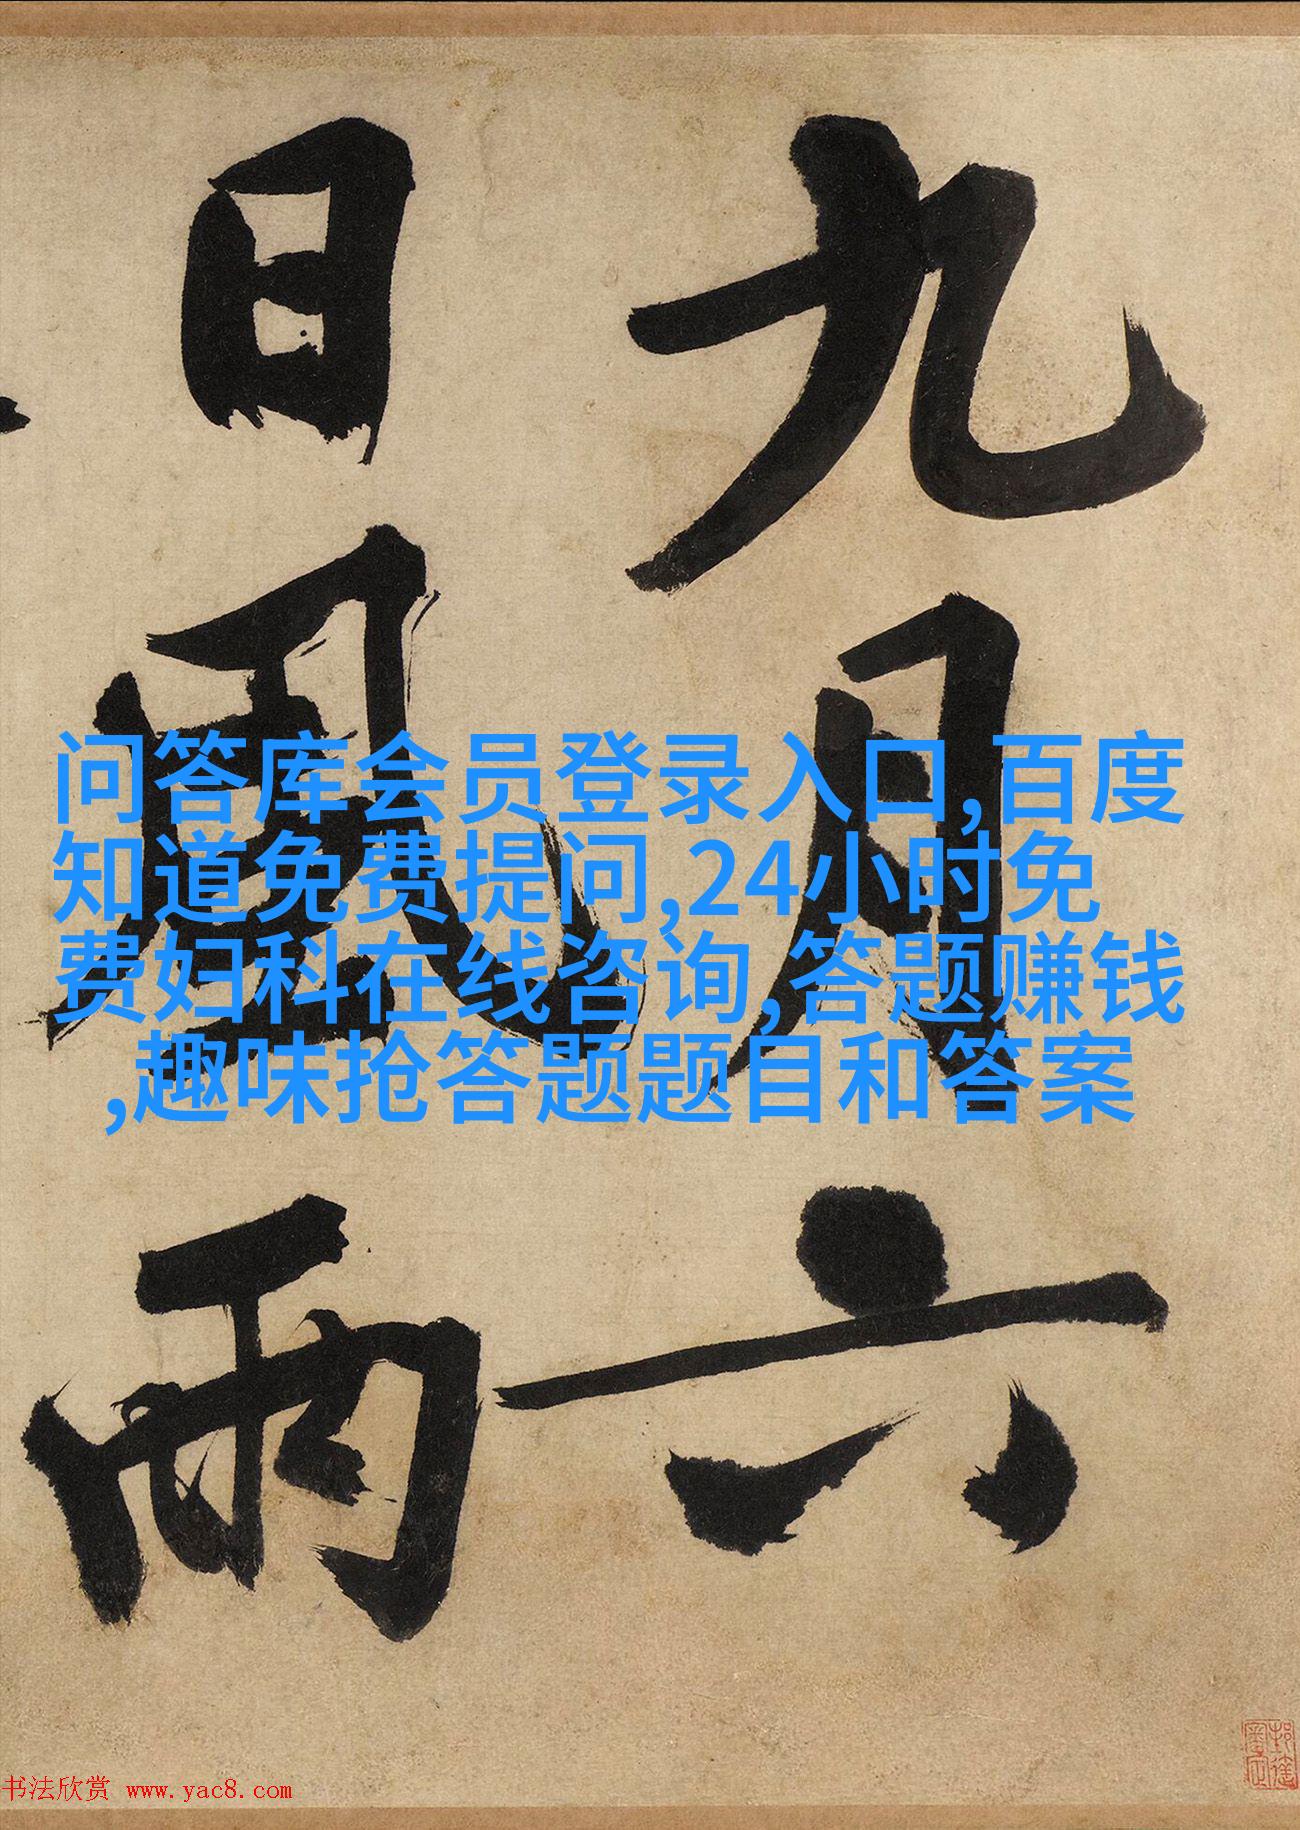 九月六
日風雨
问答库会员登录入口,百度
知道免费提问,24小时免
费妇科在线咨询,答题赚钱
,趣味抢答题题目和答案
书法欣赏 www.yac8.com